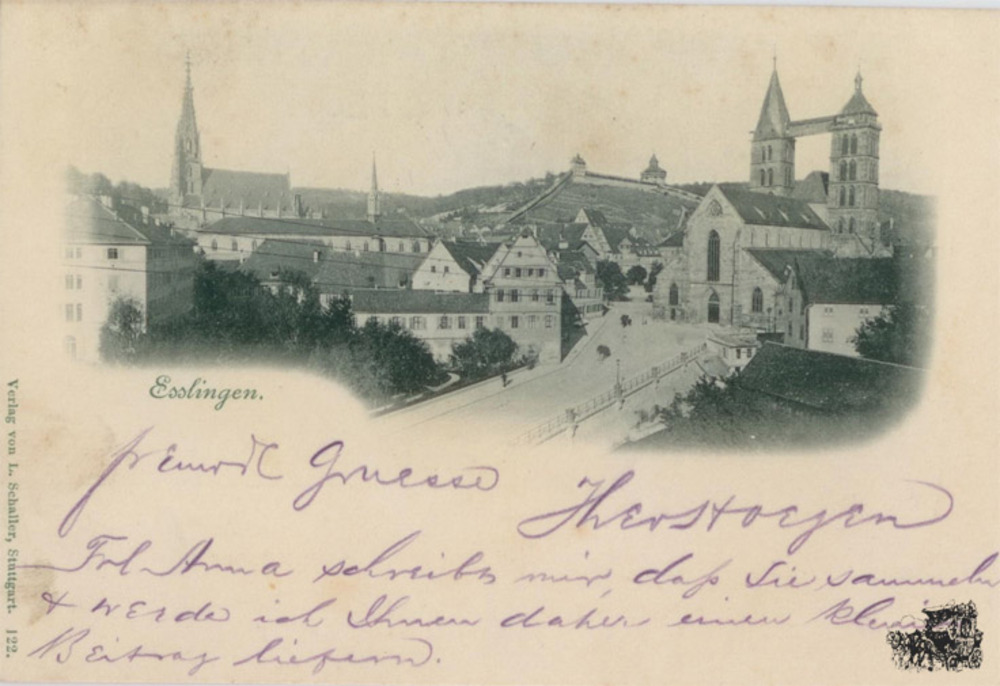 Esslingen.
Verlag von L. Schaller, Stuttgart. 122.
freundl Gruesse
Frl Anna schreibt mir, daß Sie sammeln
& werde ich Ihnen daher einen klein
Beitrag liefern.